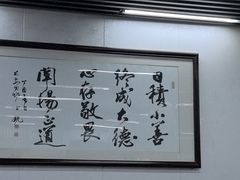 日積小善
終成大德
心存敬畏
闡揚正道